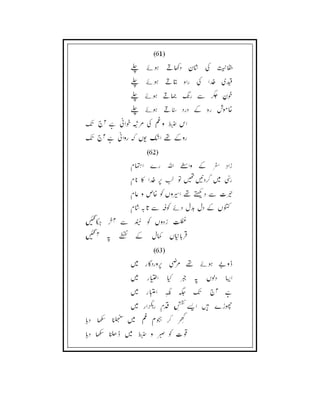 (61)
حقانیت کی شان دکھاتے ہوئے چلے
قیدی خدا کی راہ بتاتے ہوئے چلے
خون جگر سے رنگ جماتے ہوئے چلے
خاموش رہ کے درد سناتے ہوئے چلے
اس ضبط و غم کی مرثیہ خوانی ہے آج تک
روکے تھے اشک یوں کہ روانی ہے آج تک
(62)
زاد سفر کے واسطے اللہ رے اہتمام
رسی میں گردنیں تھیں تو لب پر خدا کا نام
حیرت سے دیکھتے تھے اسیروں کو خاص و عام
کتنوں کے دل بدل دئے کوفہ سے تا بہ شام
ظلمات زدوں کو نیند سے آخر جگا گئیں
قربانیاں کمال کے نقطے پہ آ گئیں
(63)
ڈوبے ہوئے تھے مرضی پروردگار میں
ایسا دلوں پہ جبر کیا اختیار میں
ہے آج تک جگہ نگہ اعتبار میں
چھوڑے ہیں ایسے نقش قدم رہگزار میں
گھر کر ہجوم غم میں سنبھلنا سکھا دیا
قوت کو صبر و ضبط میں ڈھلنا سکھا دیا